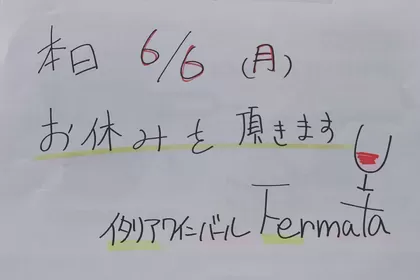 本日 6/6 (月)
お休みを頂きます
イタリアワインバール Fermata